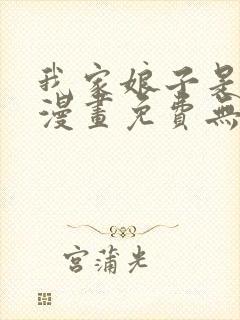 我家娘子是
漫畫免費無
宮蒲光